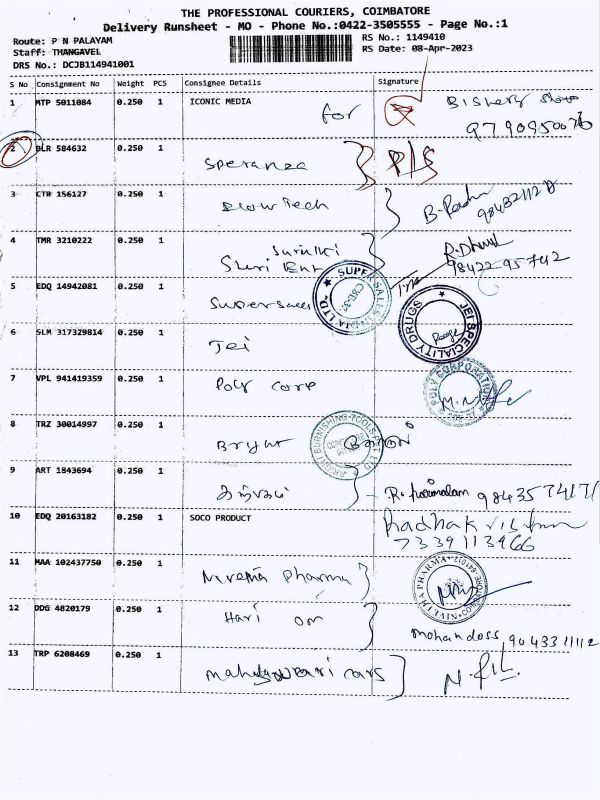 THE PROFESSIONAL COURIERS, COIMBATORE
Delivery Runsheet - MO - Phone No.:0422-3505555 - Page No.:1
Route: P N PALAYAM
RS No.: 1149410
Staff: THANGAVEL
RS Date: 08-Apr-2023
DRS No.: DCJB114941001
S No Consignment No Weight PCS Consignee Details Signature
1 MTP 5011084 0.250 1 ICONIC MEDIA for
2 BLR 584632 0.250 1 Speranza P/S
3 CTR 156127 0.250 1 Slow Tech
4 TMR 3210222 0.250 1 Ent
R. Dhanul
98422 95742
SUPER SALES INDIA LTD
5 EDQ 14942081 0.250 1 Super sales
JEI SPECIALITY DRUGS
6 SLM 317329814 0.250 1 Jei
7 VPL 941419359 0.250 1 Poly Corp
POLY CORPORATION
8 TRZ 30014997 0.250 1 Bryht
BURNISHING TOOLS PVT LTD
9 ART 1843694 0.250 1 R. Parimalam
10 EDQ 20163182 0.250 1 SOCO PRODUCT Radhakrishnan
7339113966
11 MAA 102437750 0.250 1 Pharma
NIVEJHA PHARMA
12 DDG 4820179 0.250 1 Hari om
mohandoss
13 TRP 6208469 0.250 1 Maheswari cars